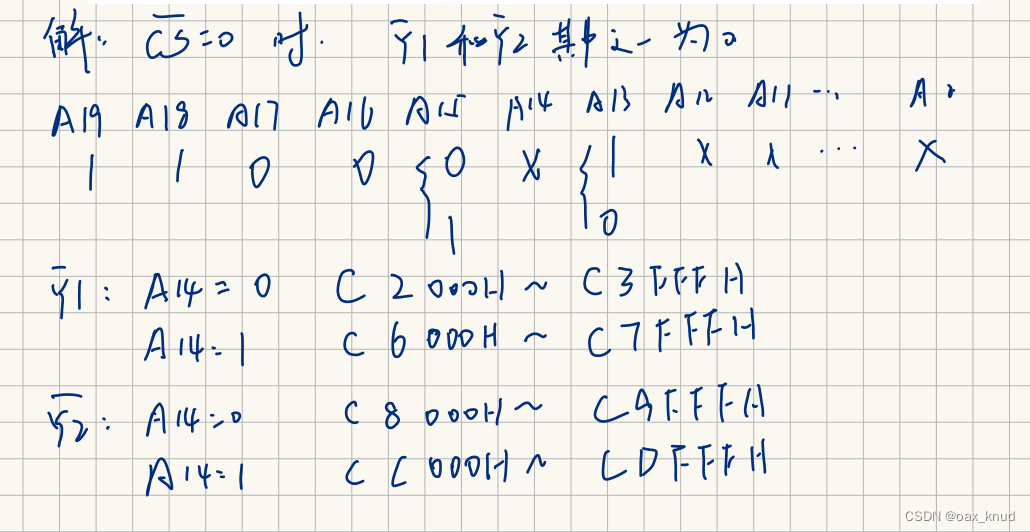 解: C̅S̅=0 时. Y̅1 和 Y̅2 其中之一为0
A19 A18 A17 A16 A15 A14 A13 A12 A11 ... A0
1 1 0 0 { 0 X { 1 X X ... X
1 0
Y̅1: A14=0 C2000H ~ C3FFFH
A14=1 C6000H ~ C7FFFH
Y̅2: A14=0 C8000H ~ C9FFFH
A14=1 CC000H ~ CDFFFH
CSDN @oax_knud